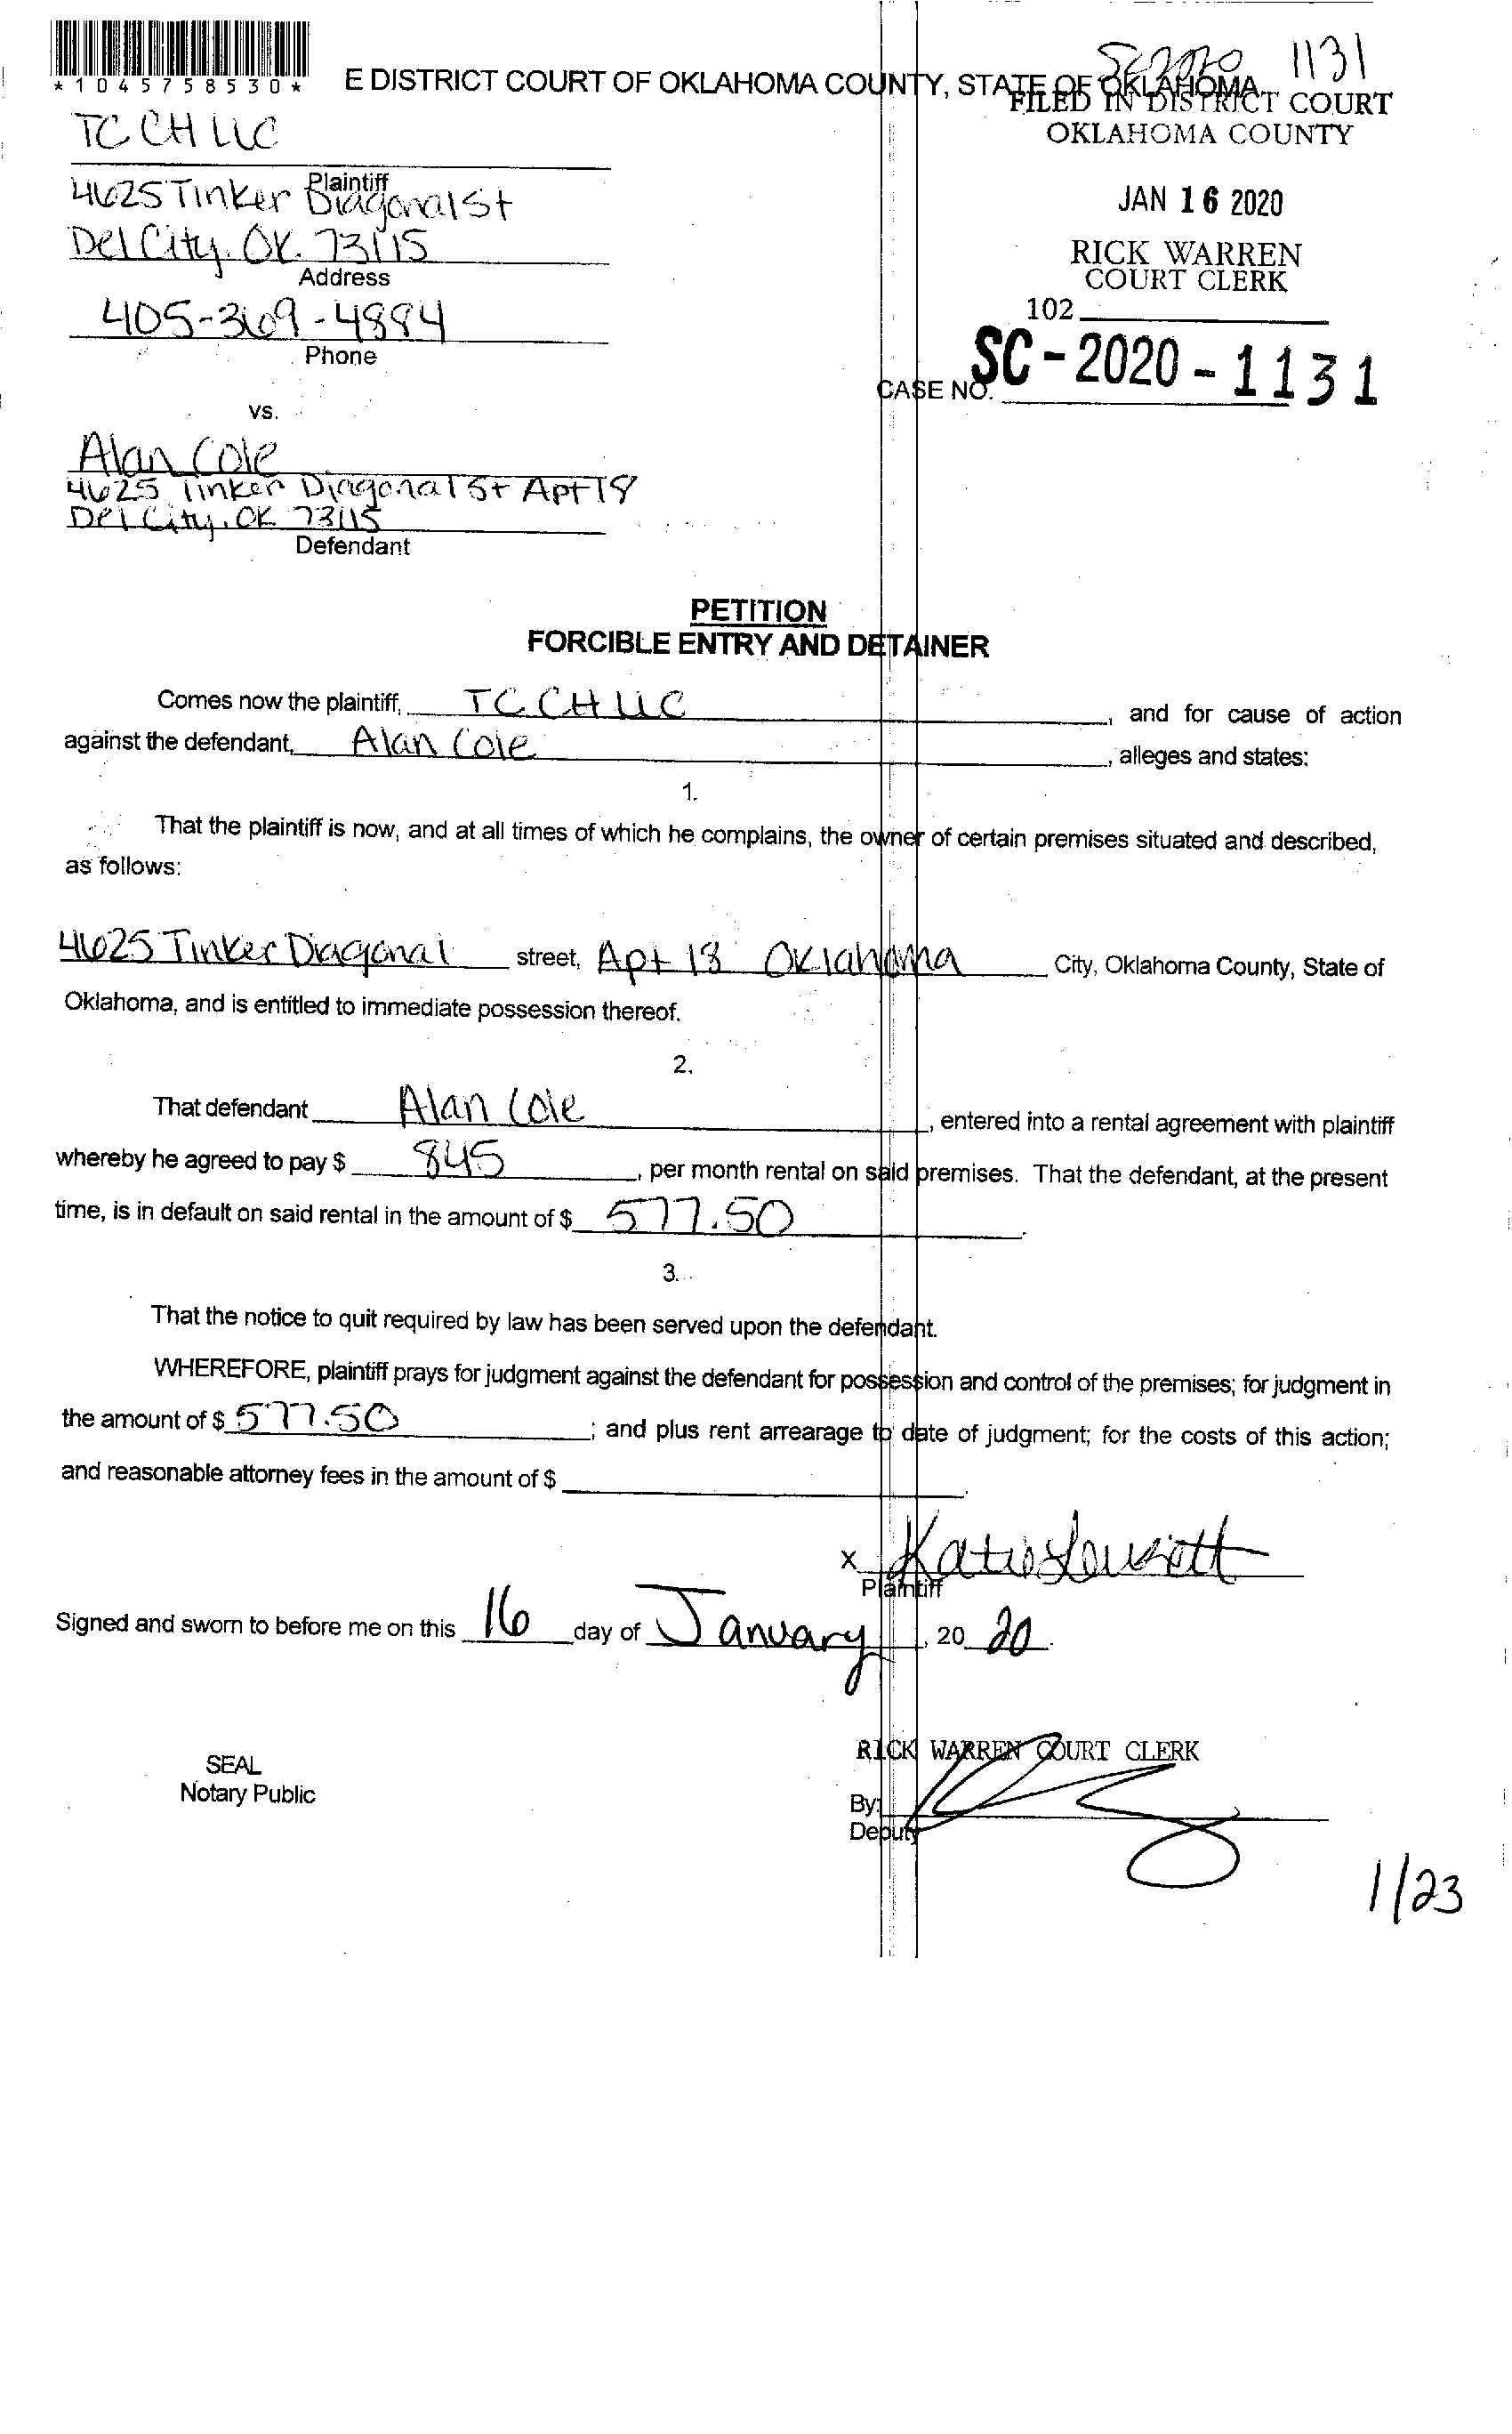 SC2020 1131
*1045758530*
E DISTRICT COURT OF OKLAHOMA COUNTY, STATE OF OKLAHOMA
FILED IN DISTRICT COURT
OKLAHOMA COUNTY
JAN 16 2020
RICK WARREN
COURT CLERK
102
CASE NO. SC-2020-1131
TC CH LLC
Plaintiff
4625 Tinker Diagonal St
Del City, OK. 73115
Address
405-369-4884
Phone
vs.
Alan Cole
4625 Tinker Diagonal St Apt 18
Del City, OK 73115
Defendant
PETITION
FORCIBLE ENTRY AND DETAINER
Comes now the plaintiff, TC CH LLC, and for cause of action
against the defendant, Alan Cole, alleges and states:
1.
That the plaintiff is now, and at all times of which he complains, the owner of certain premises situated and described,
as follows:
4625 Tinker Diagonal street, Apt 18 Oklahoma City, Oklahoma County, State of
Oklahoma, and is entitled to immediate possession thereof.
2.
That defendant Alan Cole, entered into a rental agreement with plaintiff
whereby he agreed to pay $ 845, per month rental on said premises. That the defendant, at the present
time, is in default on said rental in the amount of $ 577.50.
3.
That the notice to quit required by law has been served upon the defendant.
WHEREFORE, plaintiff prays for judgment against the defendant for possession and control of the premises; for judgment in
the amount of $ 577.50; and plus rent arrearage to date of judgment; for the costs of this action;
and reasonable attorney fees in the amount of $
x Katie
Plaintiff
Signed and sworn to before me on this 16 day of January, 20 20.
RICK WARREN COURT CLERK
SEAL
Notary Public
By:
Deputy
1/23